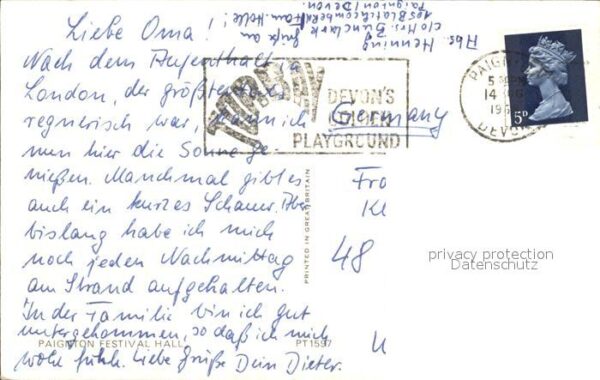 Liebe Oma!
Nach dem Aufenthalt in
London, der größtenteils
regnerisch war, kann ich
nun hier die Sonne ge-
nießen. Manchmal gibt es
auch ein kurzes Schauer. Aber
bislang habe ich mich
noch jeden Nachmittag
am Strand aufgehalten.
In der Familie bin ich gut
untergekommen, so daß ich mich
wohl fühle. Liebe Grüße Dein Dieter.
Grüße an
Frau Holle!
Abs. Henning
c/o Mrs. Bunclark
Paignton/Devon.
TORBAY
DEVON'S
GOLDEN
PLAYGROUND
Germany
PAIGNTON
14
196
DEVON
5D
Fro
Kl
48
PRINTED IN GREAT BRITAIN
privacy protection
Datenschutz
PAIGNTON FESTIVAL HALL
PT1597